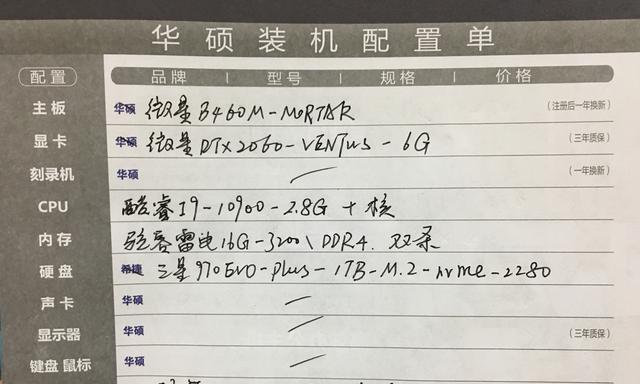 华硕装机配置单
配置 品牌 | 型号 | 规格 | 价格
主板 华硕 微星B460M-MORTAR (注册后一年换新)
显卡 华硕 微星RTX2060-VENTUS-6G (三年质保)
刻录机 华硕 (一年换新)
CPU 酷睿I9-10900-2.8G 十核
内存 16G-3200\DDR4.双条
硬盘 希捷 三星970EVO-Plus-1TB-M.2-nvme-2280
声卡 华硕
显示器 华硕 (三年质保)
键盘 鼠标 华硕